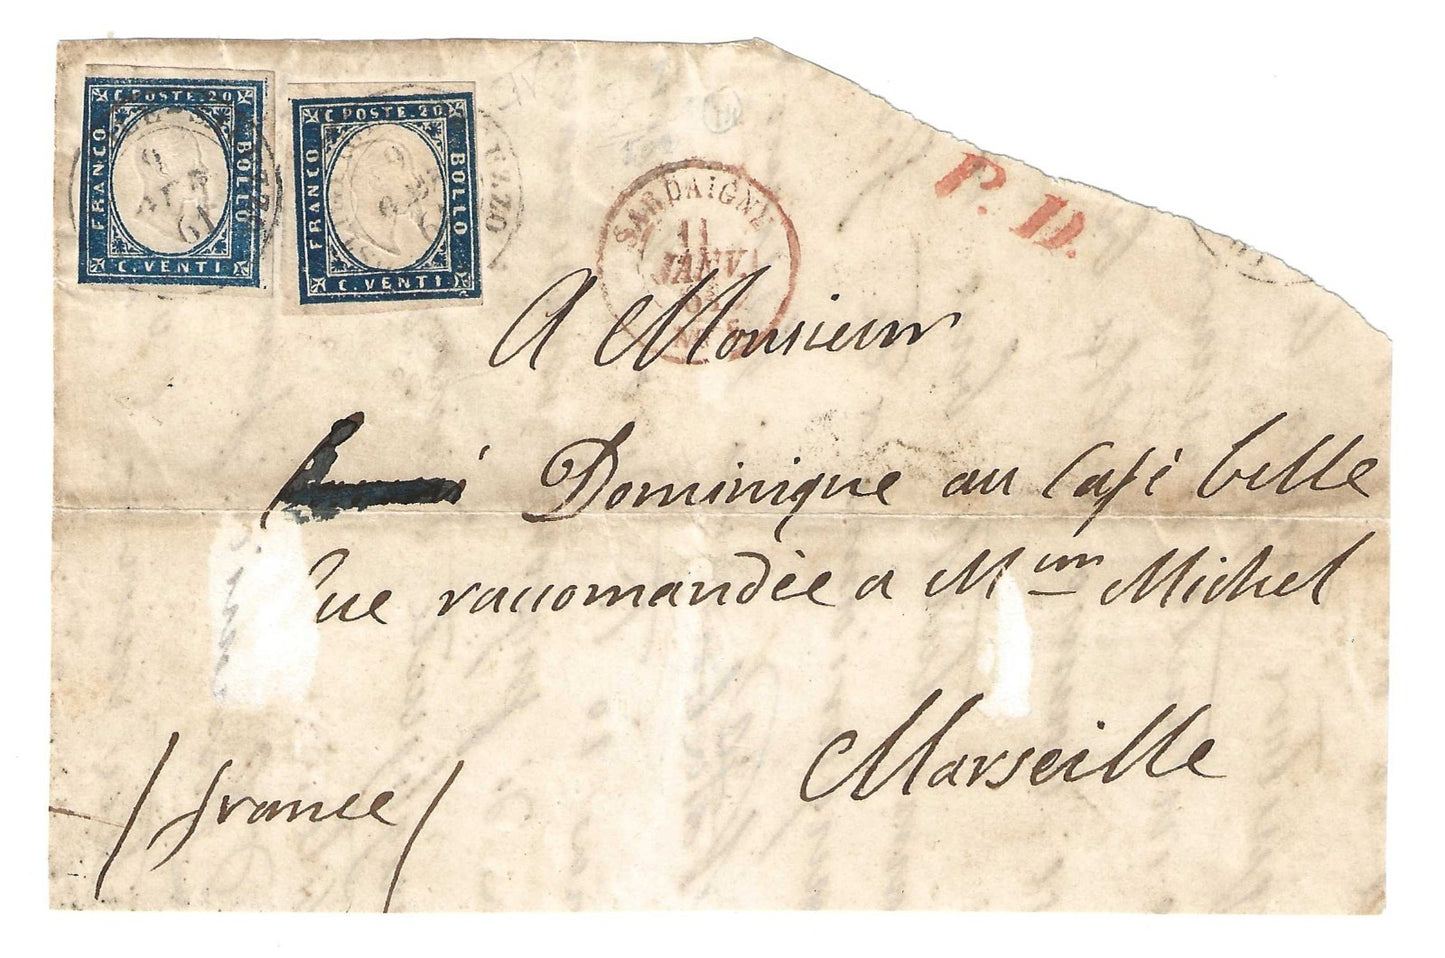 C. POSTE. 20
FRANCO
BOLLO
C. VENTI
C. POSTE. 20
FRANCO
BOLLO
C. VENTI
9
61
SARDAIGNE
11
JANV.
P. D.
A Monsieur
Dominique au Café belle
vue raccomandée a Mme Michel
Marseille
(france)